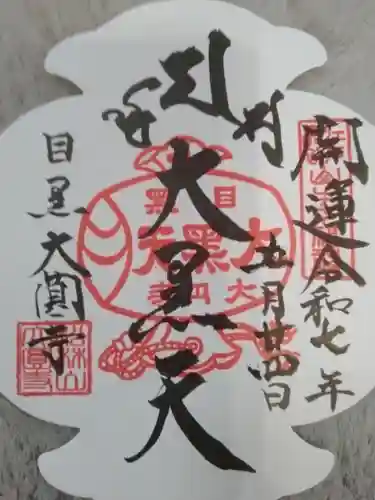 開運 令和七年
五月廿四日
大黒天
目黒大圓寺
目黒
大黒天
大円寺